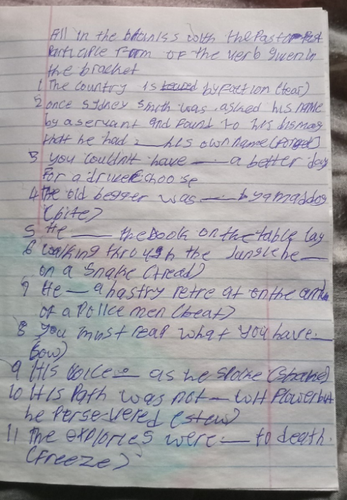 fill in the blankss with the Past or Past
Participle form of the verb given in
the bracket
1 The country is by faction (tear)
2 once sydney smith was asked his name
by a servant and found to his dismay
that he had - his own name (forget)
3 you couldn't have - a better day
for a drive choose
4 The old begger was - by a mad dog
(bite)
5 He - the book on the table lay
6 walking through the Jungle he -
on a snake (tread)
7 He - a hastry retreat on the
of a Police men (beat)
8 you must reap what you have -
Sow)
9 His voice - as he spoke (shake)
10 His Path was not - with flower but
he Perse-vered (strew)
11 The explories were - to death.
(freeze)